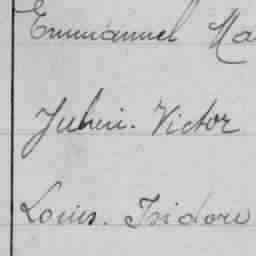 Emmanuel Ma
Julien. Victor
Louis. Isidore